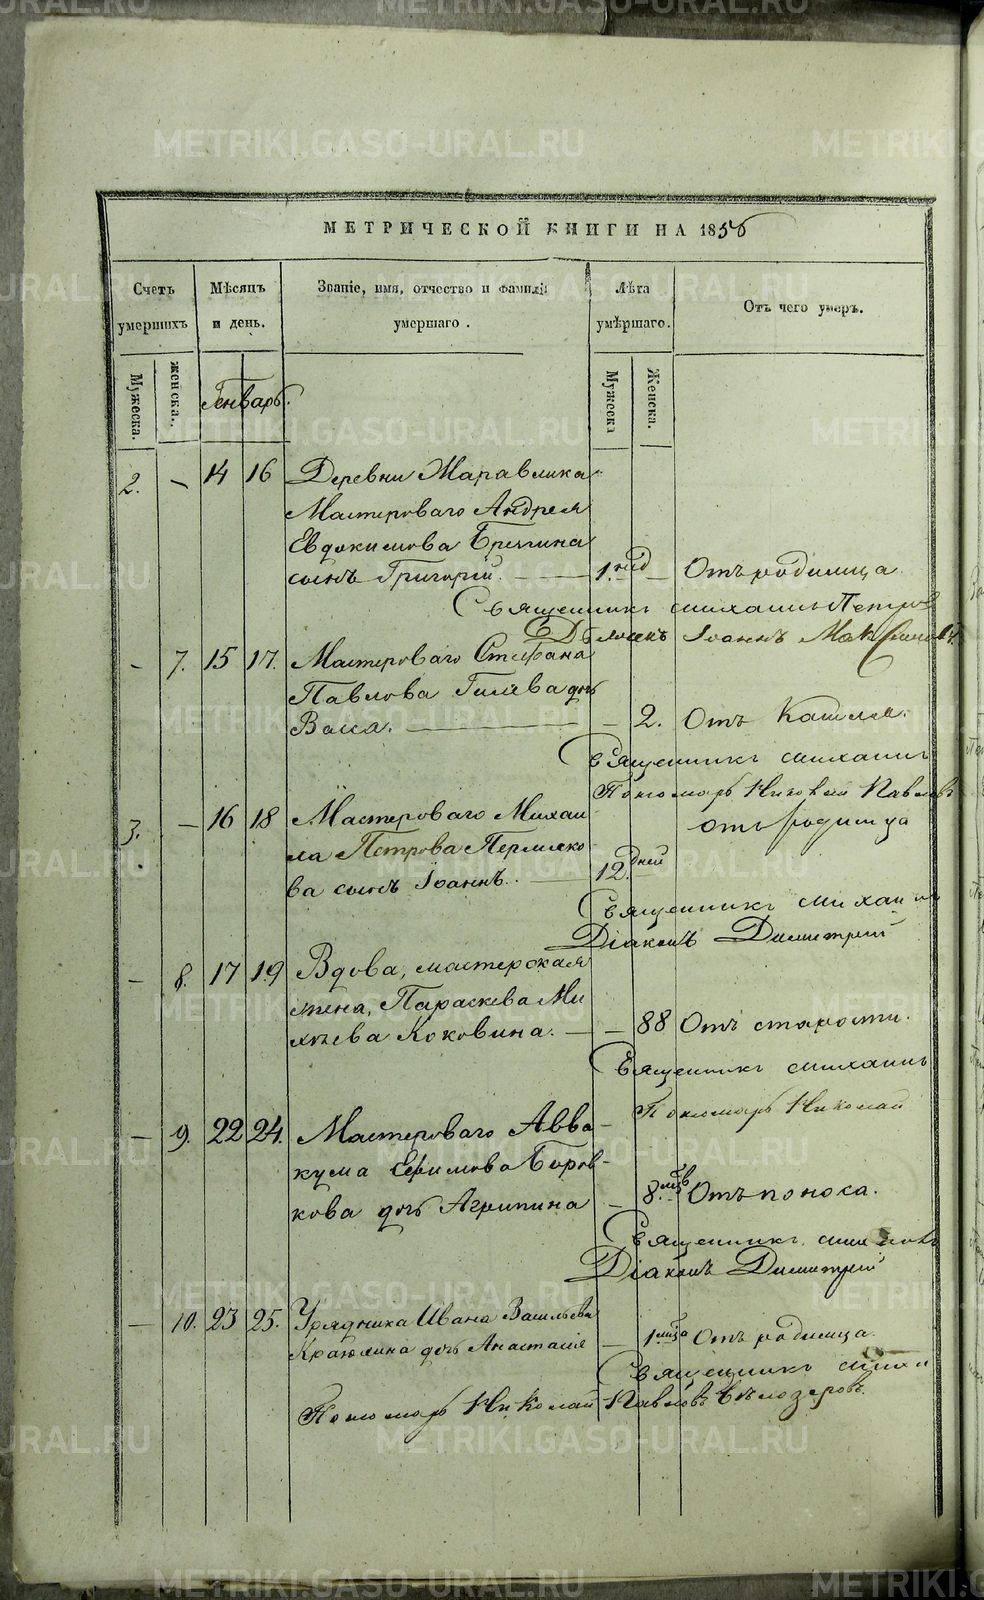 METRIKI.GASO-URAL.RU
МЕТРИЧЕСКОЙ КНИГИ НА 1856
Счетъ умершихъ
Мѣсяцъ и день.
Званіе, имя, отчество и фамилія умершаго.
Лѣта умершаго.
Отъ чего умеръ.
Мужеска.
женска.
Генварь.
Мужеска
Женска.
2. - 14 16 Деревни Маравлика
Мастероваго Андрея
Евдокимова Брягина
сынъ Григорій. 1. нед Отъ родимца.
Священникъ Михаилъ Петров
Дьячекъ Іоаннъ
- 7. 15 17. Мастероваго Стефана
Павлова Гилева дочь
Васса. - 2. Отъ Кашля.
Священникъ Михаилъ
Пономарь Николай Павловъ
3. - 16 18 Мастероваго Михаи
ла Петрова Пермяко-
ва сынъ Іоаннъ. 12. дней отъ родимца
Священникъ Михаилъ
Діаконъ Димитрій
- 8. 17 19 Вдова, мастерская
жена, Параскева Ми
хѣева Коковина. - 88 Отъ старости.
Священникъ Михаилъ
Пономарь Николай
- 9. 22 24. Мастероваго Авва-
кума Ефимова Боров-
кова дочь Агрипина - 8. мцв Отъ поноса.
Священникъ Михаилъ
Діаконъ Димитрій
- 10. 23 25. Урядника Ивана Васильева
дочь Анастасія - 1. мца Отъ родимца.
Священникъ Михаи
Пономарь Николай Павловъ Бѣлозеровъ.